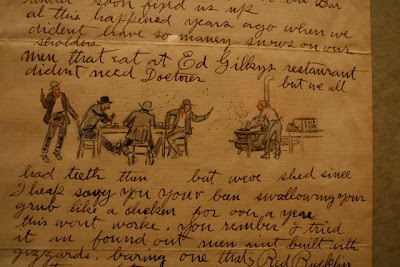 soon find us up
al this happened years ago when we
dident have so maney snows on our
sholders
men that eat at Ed Gilkys restaurant
dident need Doctors but we all
bad teeth then but weve shed since
I heap sorry you your been swallowing your
grub like a chicken for over a year
this wont worke, you rember I tried
it an found out men aint built with
gizzards, baring one thats Red